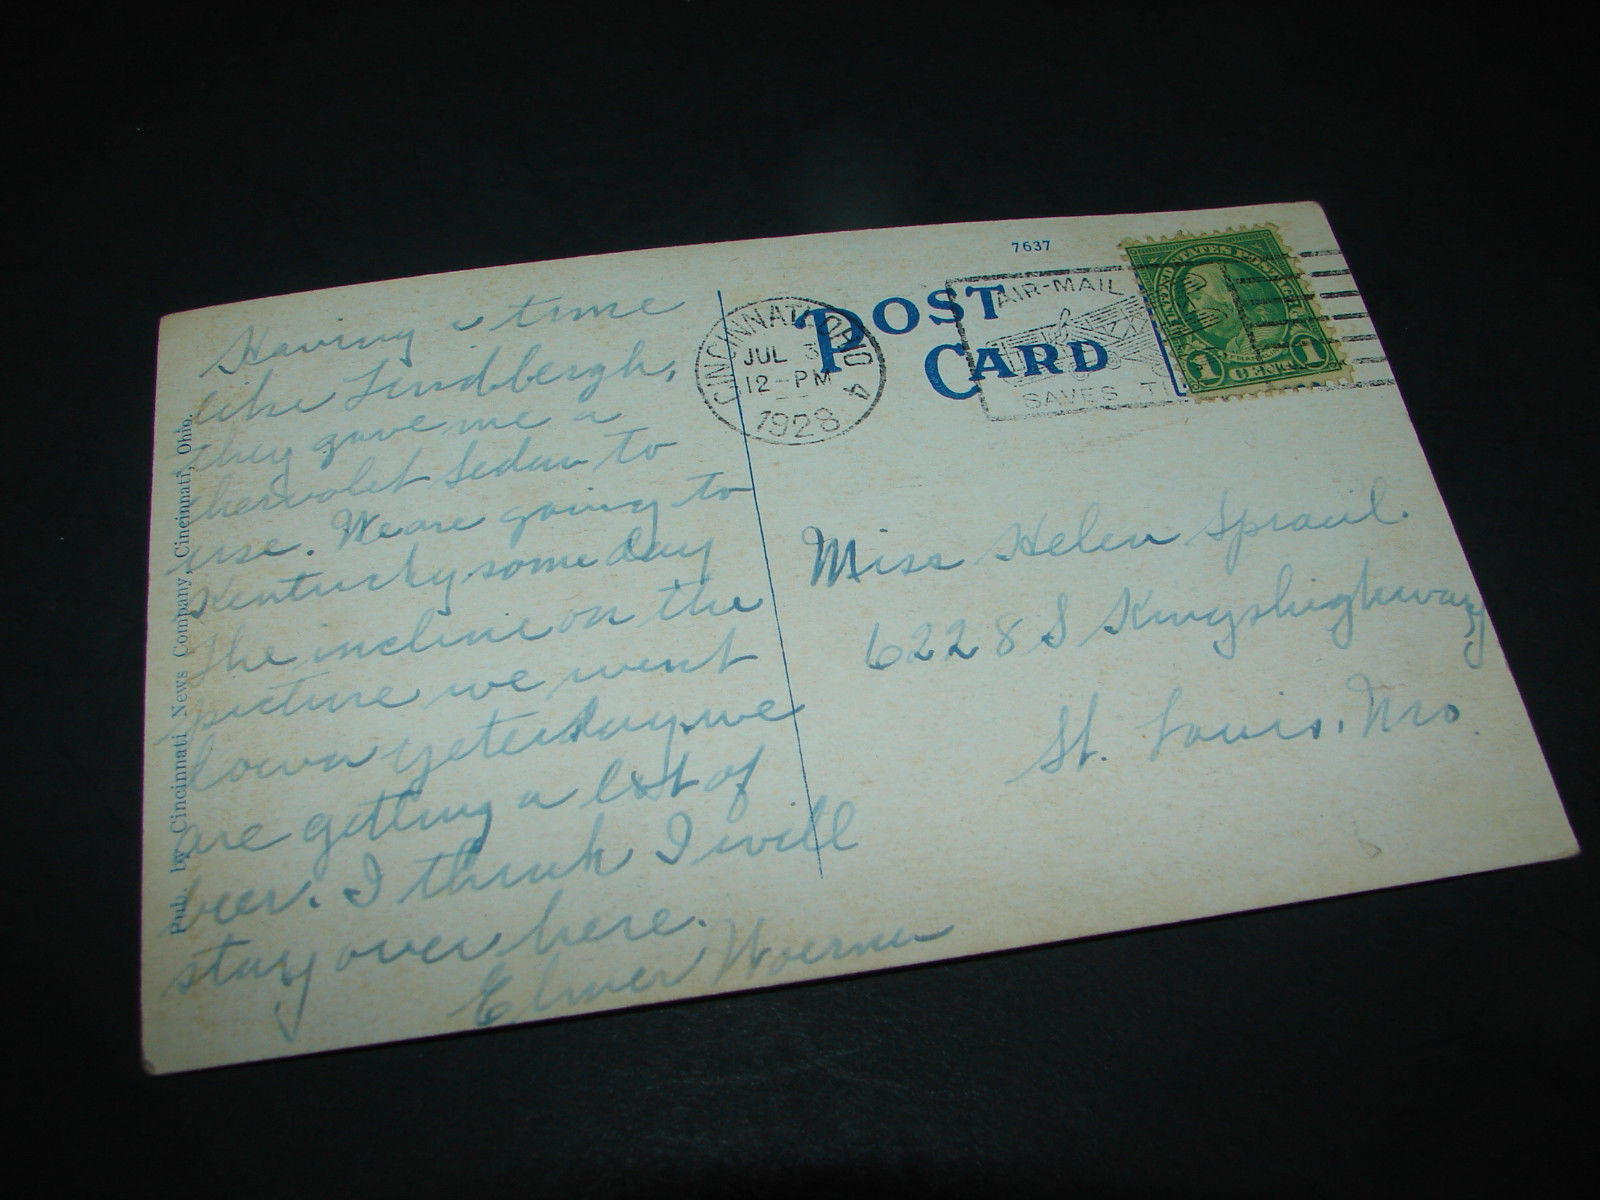 Having a time
like Lindbergh,
they gave me a
chervolet Sedan to
use. We are going to
Kentucky some day
The incline on the
picture we went
down yeterday, we
are getting a lot of
beer. I think I will
stay over here.
Elmer Woerner
Pub. by Cincinnati News Company, Cincinnati, Ohio.
7637
POST
CARD
CINCINNATI, OHIO 4
JUL 3
12-PM
1928
AIR-MAIL
SAVES TI
FRANKLIN
1 CENT 1
Miss Helen Sprail.
6228 S Kingshighway
St. Louis, Mo.